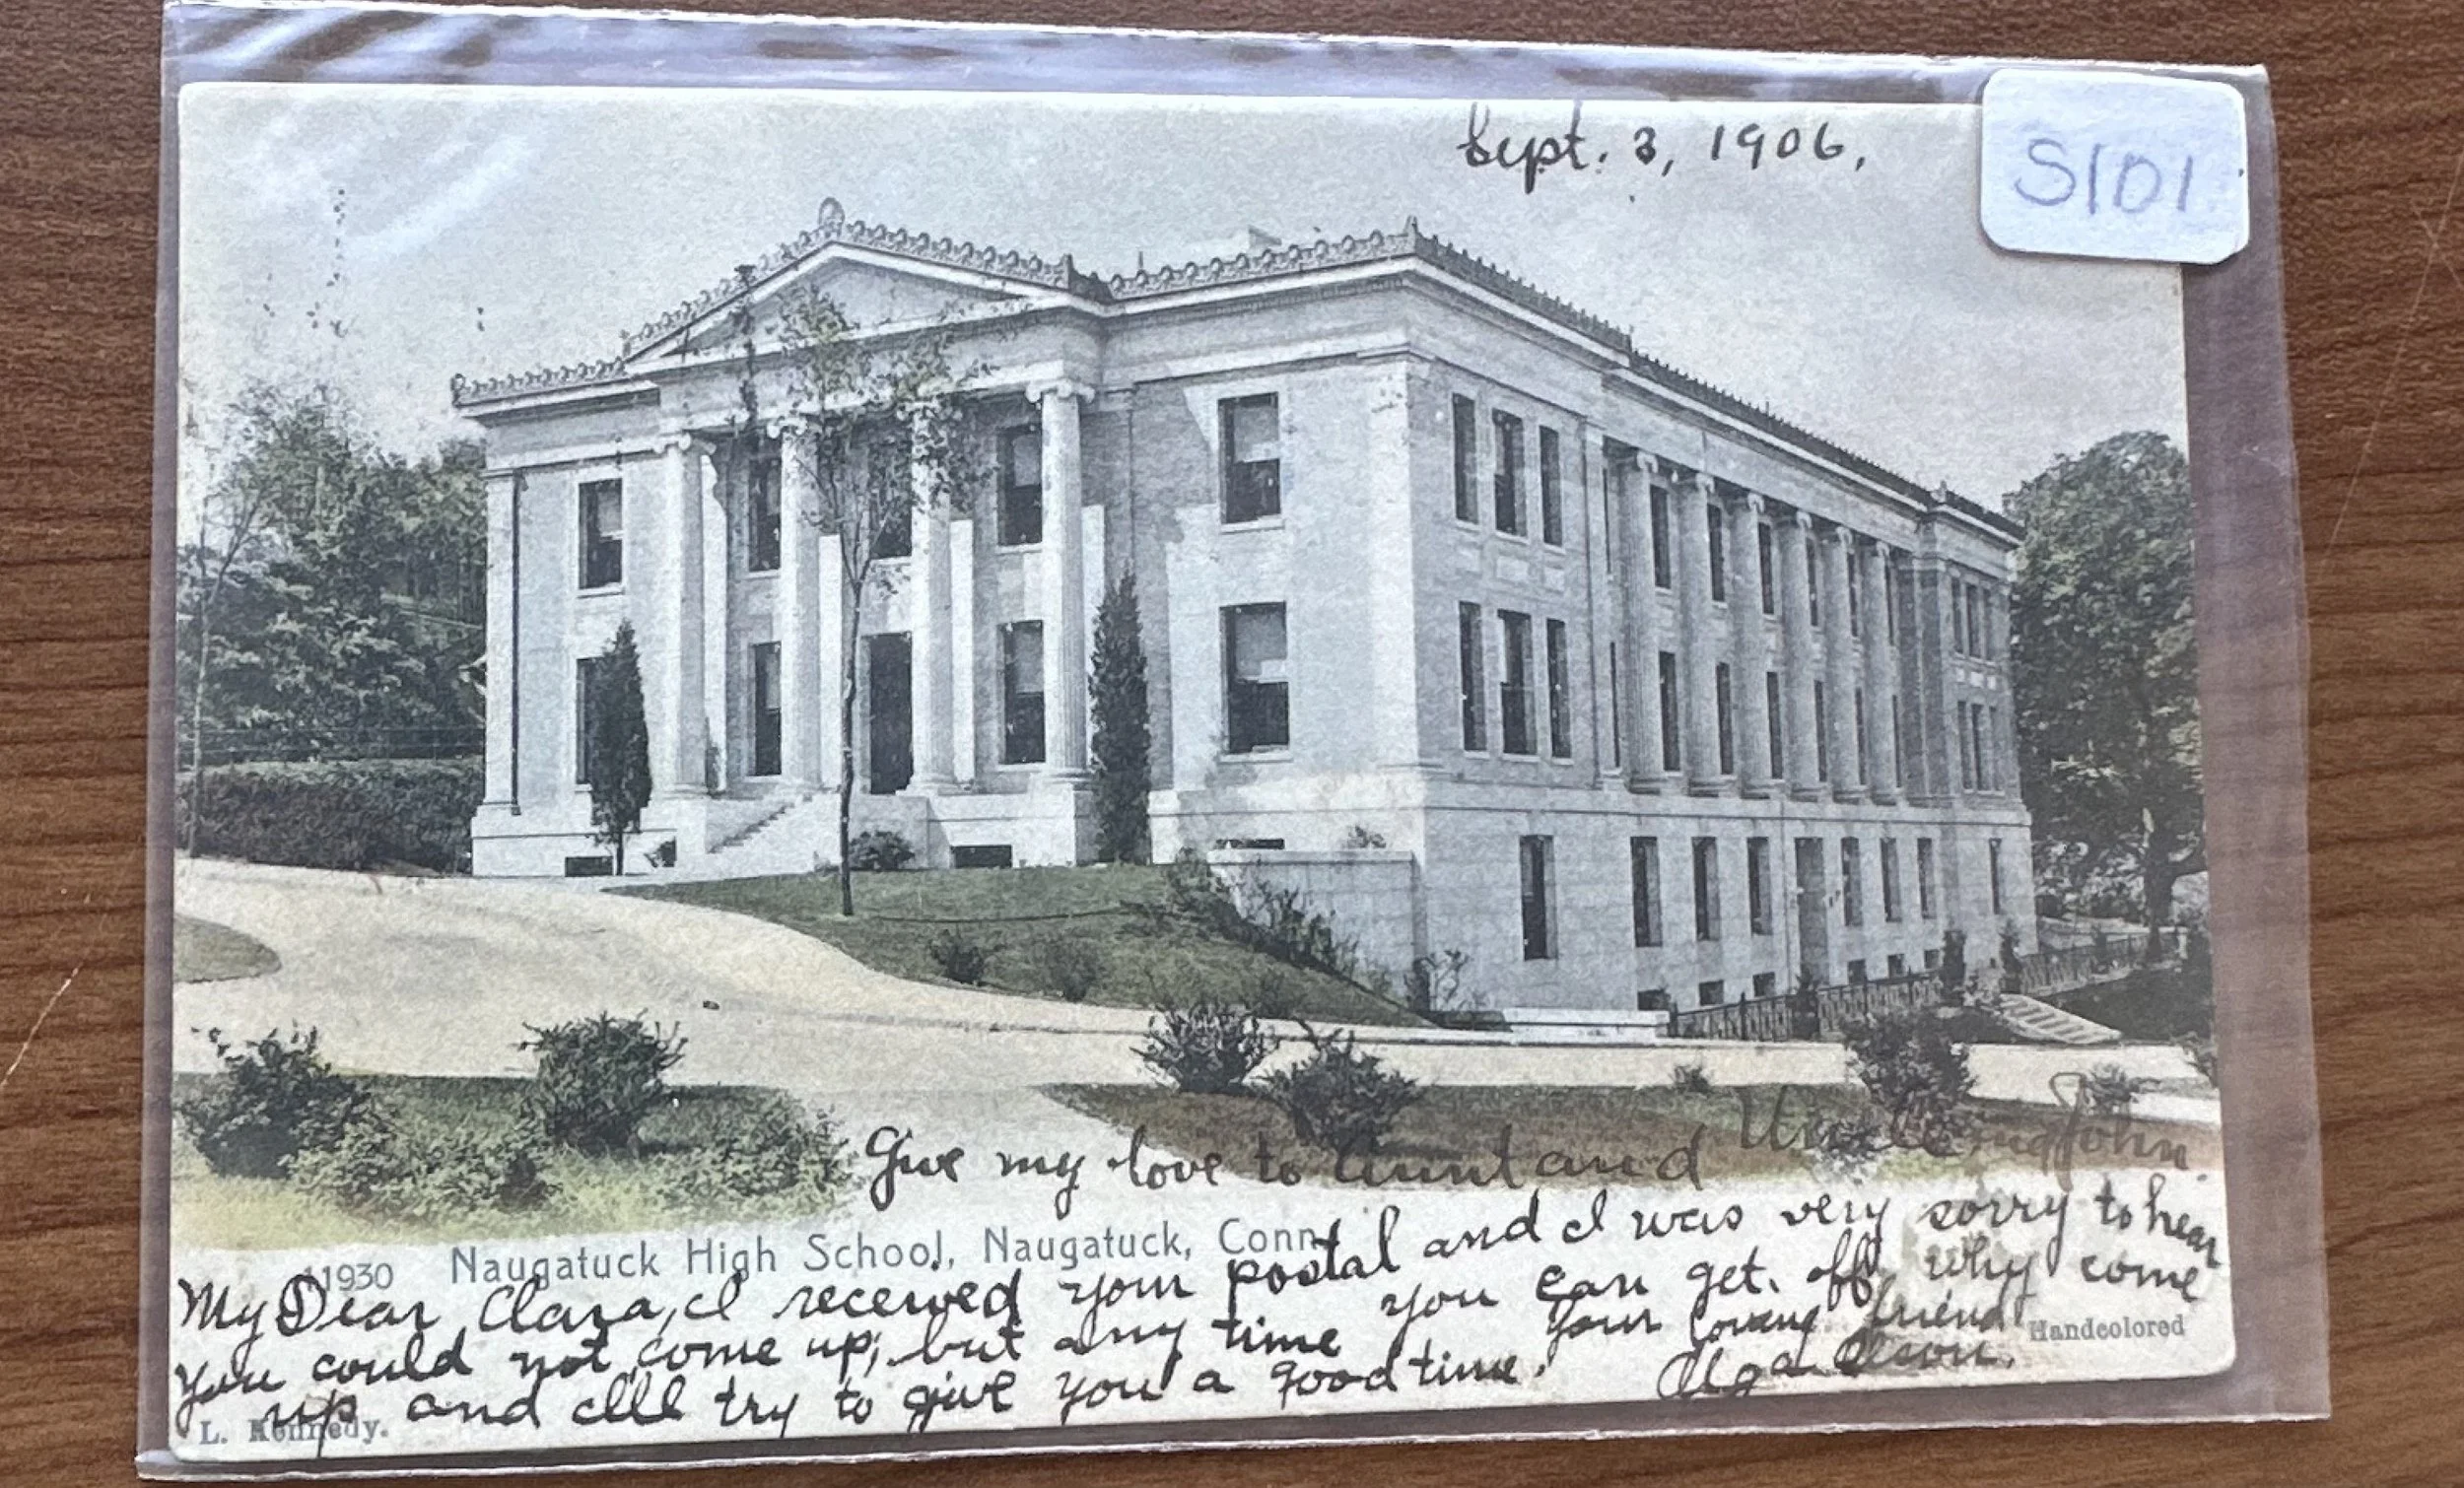 Sept. 3, 1906.
S101
Give my love to Aunt and Uncle John.
11930 Naugatuck High School, Naugatuck, Conn.
My Dear Clara, I received your postal and I was very sorry to hear
you could not come up; but any time you can get off why come
up and I'll try to give you a good time.
Your loving friend
Olga Olson.
Handcolored
L. Kennedy.